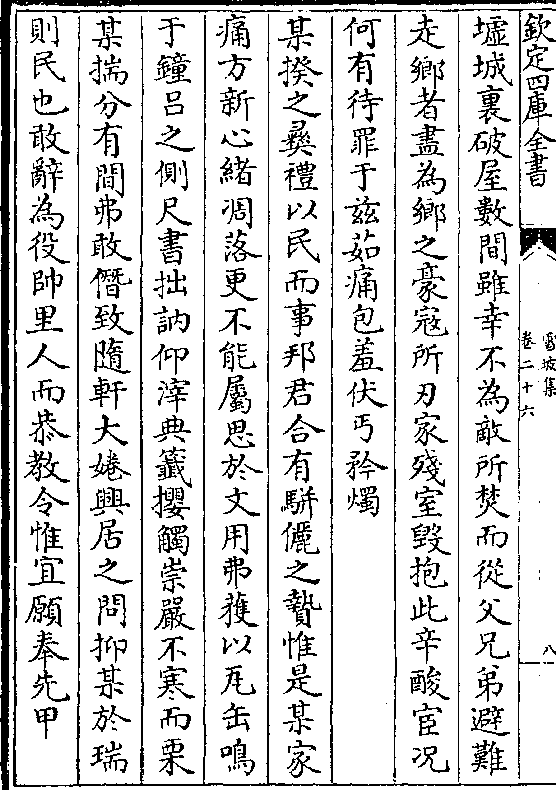 欽定四庫全書
雪坡集
卷二十六
八
墟城裏破屋數間雖幸不為敵所焚而從父兄弟避難
走鄉者盡為鄉之豪寇所刃家殘室毀抱此辛酸宦况
何有待罪于兹茹痛包羞伏丐矜燭
某揆之彞禮以民而事邦君合有駢儷之贄惟是某家
痛方新心緒凋落更不能屬思於文用弗獲以瓦缶鳴
于鐘呂之側尺書拙訥仰滓典籤攖觸崇嚴不寒而栗
某揣分有間弗敢僭致隨軒大婘興居之問抑某於瑞
則民也敢辭為役帥里人而恭教令惟宜願奉先甲